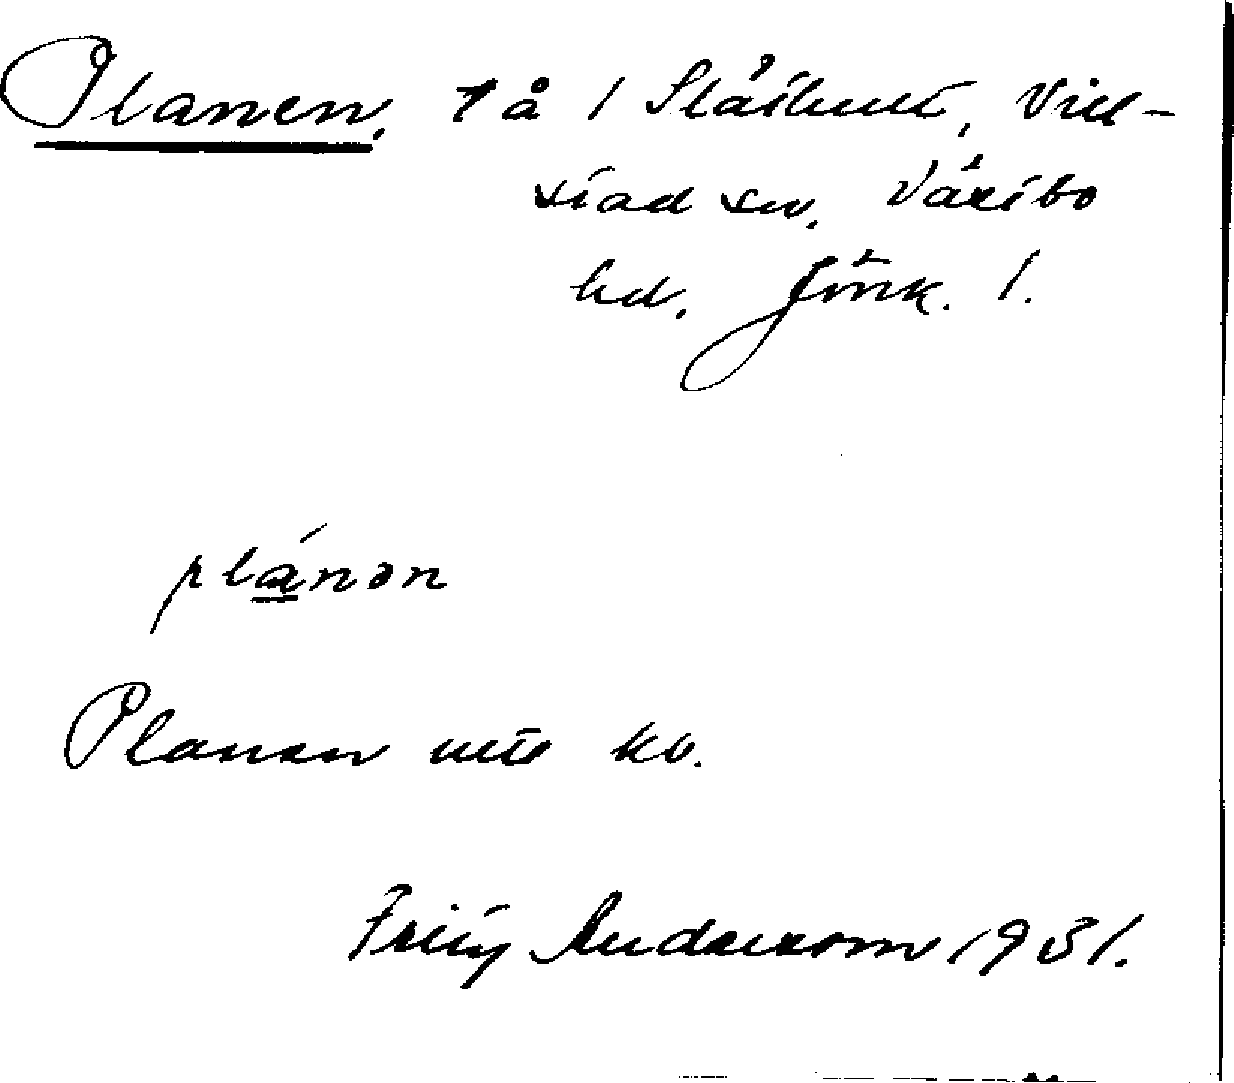 Planen, på 1 Slåthult, Vill-
stad sn. Västbo
hd. Jönk. l.
plánən
Planen utö kv.
Fritz Andersson 1931.